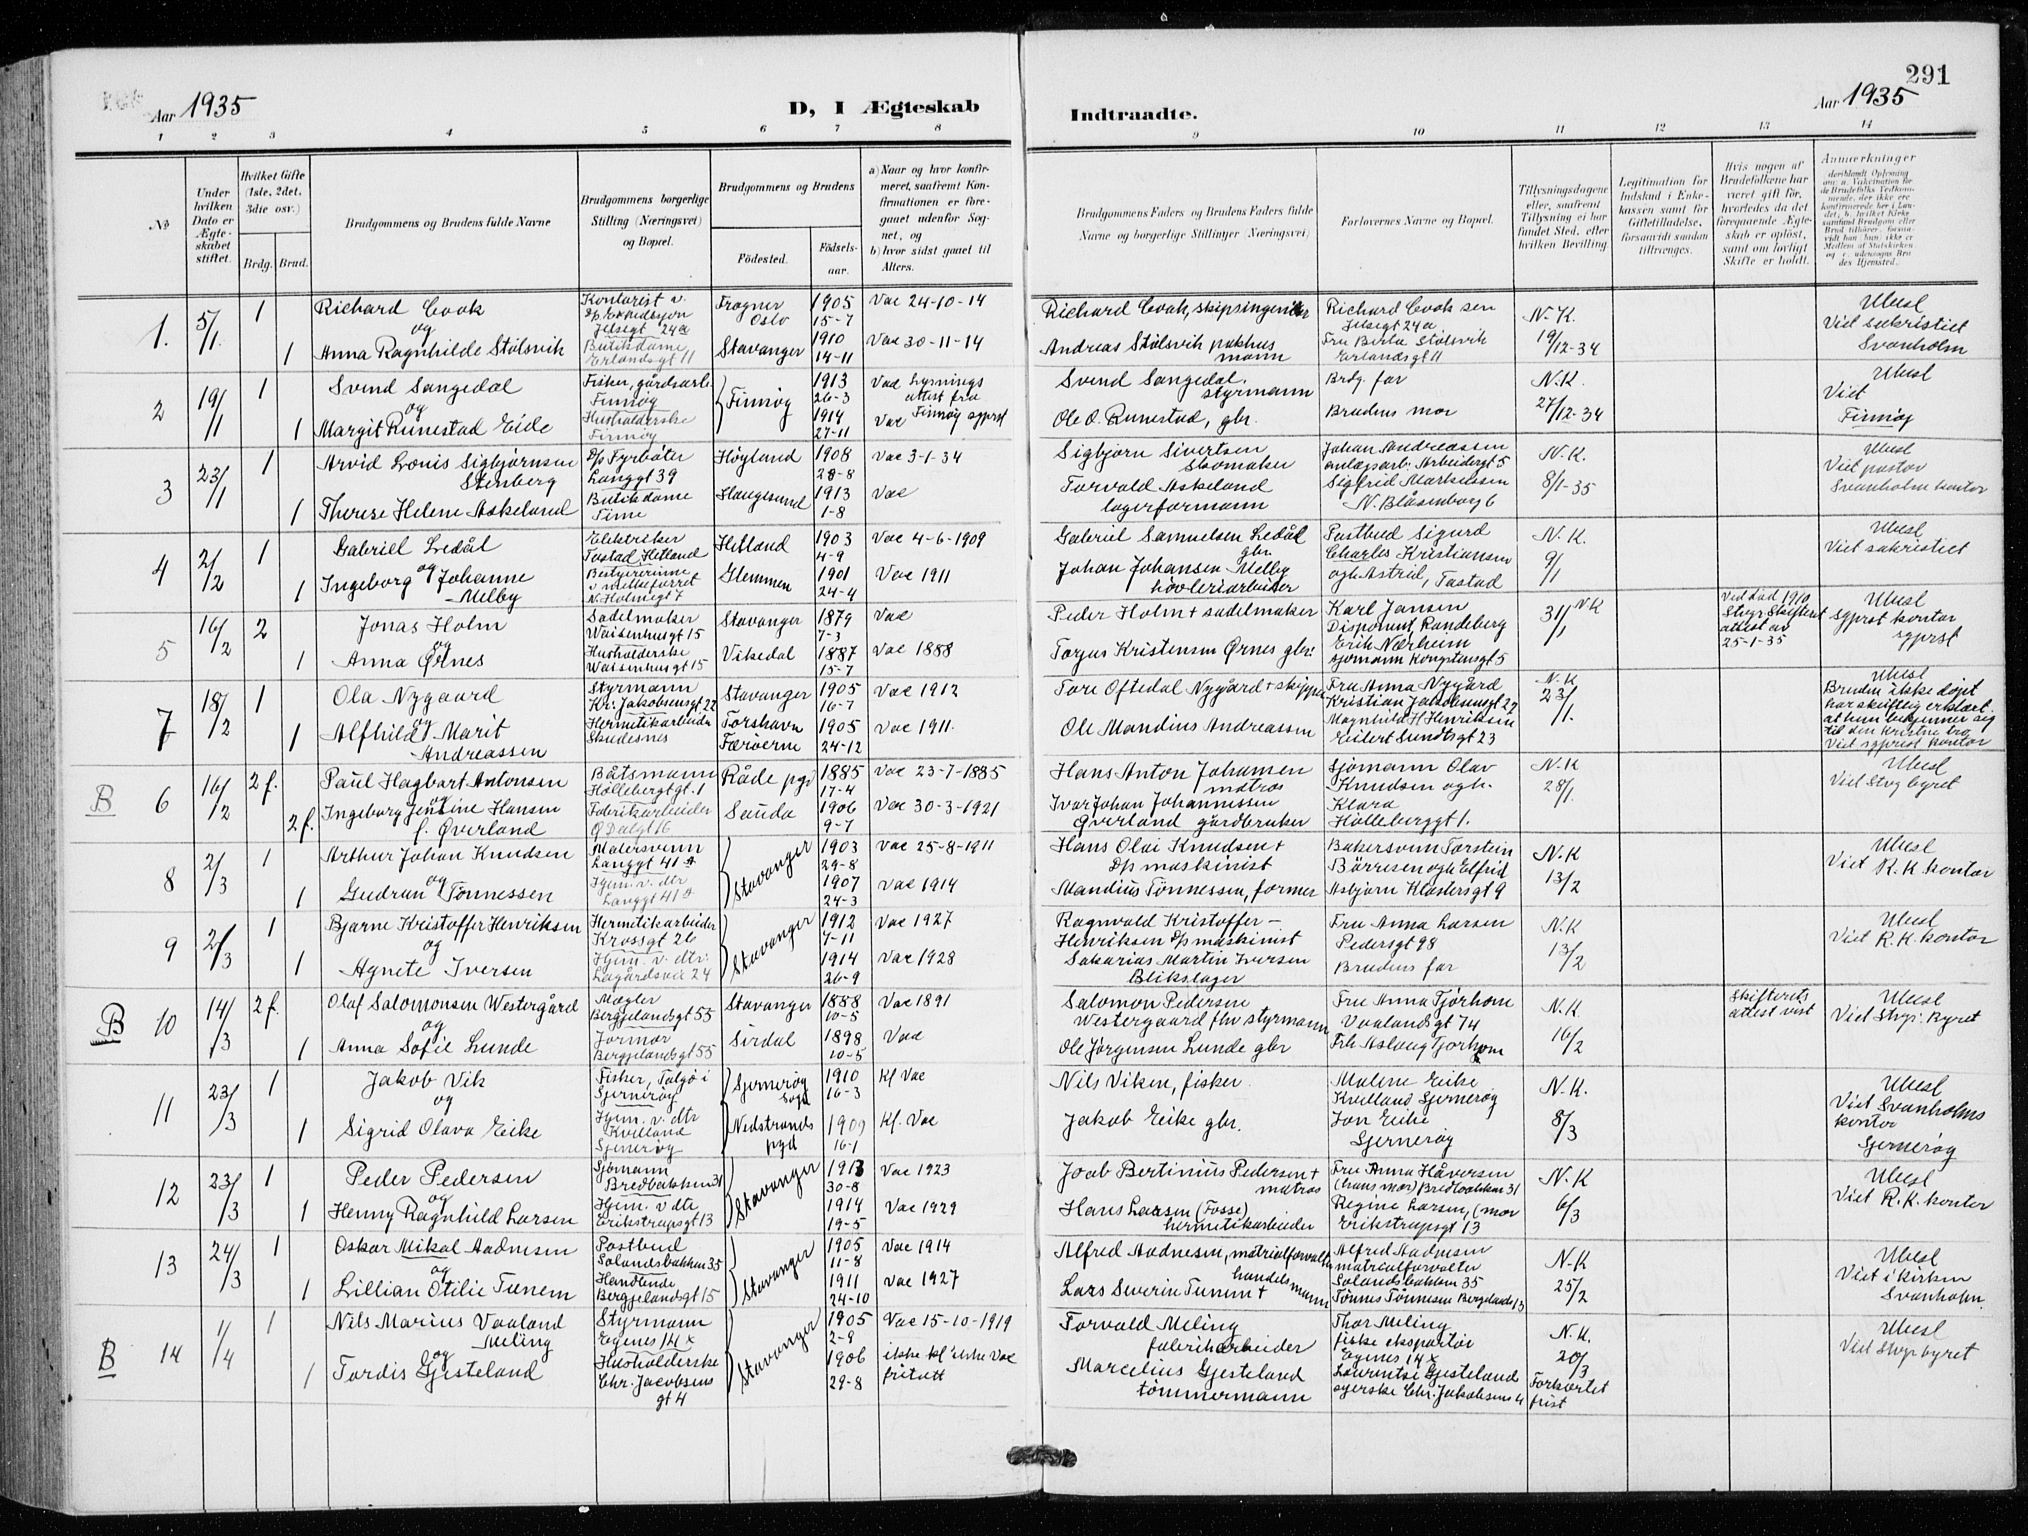 291
Aar 1935
D, I Ægteskab
Indtraadte.
Aar 1935
1 2 3 4 5 6 7 8 9 10 11 12 13 14
No
Under hvilken Dato er Ægteskabet stiftet.
Hvilket Gifte (1ste, 2det, 3die osv.)
Brdg. Brud.
Brudgommens og Brudens fulde Navne
Brudgommens borgerlige Stilling (Næringsvei) og Bopæl.
Brudgommens og Brudens
Fødested.
Fødselsaar.
a) Naar og hvor konfirmeret, saafremt Konfirmationen er foregaaet udenfor Sognet, og
b) hvor sidst gaaet til Alters.
Brudgommens Faders og Brudens Faders fulde Navne og borgerlige Stillinger (Næringsvei)
Forlovernes Navne og Bopæl.
Tillysningsdagene eller, saafremt Tillysning ei har fundet Sted, efter hvilken Bevilling.
Legitimation for Indskud i Enkekassen samt for Giftetilladelse, forsaavidt saadan tiltrænges.
Hvis nogen af Brudefolkene har været gift før, hvorledes da det foregaaende Ægteskab er opløst, samt om lovligt Skifte er holdt.
Anmærkninger
1. 5/1 1 Richard Cook
og
1 Anna Ragnhilde Stølsvik
Kontorist v.
D/p Expedisjon
Jelsegt 24a
Butikdame
Erlandsgt 11
Frogner Oslo
Stavanger
1905 15-7
1910 14-11
Vac 24-10-14
Vac 30-11-14
Richard Cook, skipsingeniør
Andreas Stølsvik pakhusmann
Richard Cook sen
Jelsegt 24a
Fru Berta Stølsvik
Erlandsgt 11
N.K.
19/12-34
Ubesl
Viet sakristiet
Svanholm
2 19/1 1 Svend Sangedal
og
1 Margit Runestad Eide
Fisker, gårdsarb.
Finnøy
Husholderske
Finnøy
Finnøy
1913 26-3
1914 27-11
Vac Lysningsattest fra
Vac Finnøy sgprst
Svend Sangedal.
styrmann
Ole O. Runestad, gbr.
Brdg. far
Brudens mor
N.K.
27/12-34
Ubesl
Viet
Finnøy
3 23/1 1 Arvid Lovis Sigbjørnsen
Stenberg
1 Therese Helene Askeland
D/p Fyrbøter
Langgt 39
Butikdame
Time
Høyland
Haugesund
1908 28-8
1913 1-8
Vac 3-1-34
Vac
Sigbjørn Sivertsen
skomaker
Torvald Askeland
lagerformann
Johan Andreassen
anlægsarb. Arbeidergt 5
Sigfrid Markussen
N. Blåsenborg 6
N.K.
8/1-35
Ubesl
Viet pastor
Svanholm kontor
4 2/2 1 Gabriel Ledål
og
1 Ingeborg Johanne
Melby
Elektriker
Tastad, Hetland
Bestyrerinne
N. Holmegt 7
Hetland
Glemmen
1903 4-9
1901 24-4
Vac 4-6-1909
Vac 1911
Gabriel Samuelsen Ledål
gbr.
Johan Johansen Melby
høvleriarbeider
Postbud Sigurd
Charles Kristiansen
ogh Astrid, Tastad
N.K.
9/1
Ubesl
Viet sakristiet
5 16/2 2 Jonas Holm
og
1 Anna Ørnes
Sadelmaker
Waisenhusgt 15
Husholderske
Waisenhusgt 15
Stavanger
Vikedal
1879 7-3
1887 15-7
Vac
Vac 1888
Peder Holm + sadelmaker
Torjus Kristensen Ørnes gbr.
Karl Jansen
Disponent, Randeberg
Erik Nærheim
sjømann Kongstensgt 5
31/1 NK
Ved død 1910
Stvgr Skifteret
attest av
25-1-35
Ubesl
sgprst kontor
sgprst
7 18/2 1 Ola Nygaard
og
1 Alfhild Marit
Andreassen
Styrmann
Kr. Jakobsensgt 22
Hermetikarbeider
Skudesnes
Stavanger
Torshavn
Færøerne
1905 16-7
1905 24-12
Vac 1912
Vac 1911
Tore Oftedal Nygård + skipper
Ole Mandius Andreassen
Fru Anna Nygård
Kristian Jakobsensgt 22
Magnhild H Henriksen
Eilert Sundtsgt 23
N.K
23/1.
Ubesl
Bruden ikke døpt
har skriftlig erklært
at hun bekjenner sig
til den kristne tro
Viet sgprest kontor
B 6 16/2 2 f. Paul Hagbart Antonsen
og
2 f. Ingeborg Jensine Hansen
f. Øverland
Båtsmann
Hollebergtgt. 1
Fabrikarbeider
Ø Dalgt 16
Råde pgd
Sauda
1885 17-4
1906 9-7
Vac 23-7-1885
Vac 30-3-1921
Hans Anton Johansen
matros
Ivar Johan Johannessen
Øverland gårdbruker
Sjømann Olav
Knudsen ogh.
Klara
Holleberggt 1.
N.K
28/1.
Ubesl
Viet Stvg byret
8 2/3 1 Arthur Johan Knudsen
og
1 Gudrun Tønnessen
Malersvenn
Langgt 41 A
Hjem. v. dtr
Langgt 41 A
Stavanger
1903 29-8
1907 24-3
Vac 25-8-1911
Vac 1914
Hans Olai Knudsen +
D/p maskinist
Mandius Tønnessen, former
Bakersvenn Torstein
Børresen ogh Elfrid
Asbjørn Klostersgt 9
N.K
13/2
Ubesl
Viet R. K. kontor
9 2/3 1 Bjarne Kristoffer Henriksen
og
1 Agnete Iversen
Hermetikarbeider
Krossgt 26
Hjem. v. dtr.
Lagårdsvei 24
Stavanger
1912 7-11
1914 26-9
Vac 1927
Vac 1928
Ragnvald Kristoffer –
Henriksen D/p maskinist
Sakarias Martin Iversen
Blikslager
Fru Anna Larsen
Pedersgt 98
Brudens far
N.K
13/2
Ubesl
Viet R. K. kontor
B 10 14/3 2 f. Olaf Salomonsen Westergård
og
1 Anna Sofie Lunde
Mægler
Bergjelandsgt 55
Jormor
Bergjelandsgt 55
Stavanger
Sirdal
1888 10-5
1898 10-5
Vac 1891
Vac
Salomon Pedersen
Westergaard fhv styrmann
Ole Jørgensen Lunde gbr
Fru Anna Tjørhom
Vaalandsgt 74
Frk Aslaug Tjørhom
N.K.
16/2
Skifterets
attest vist
Ubesl
Viet Stvgr. Byret
11 23/3 1 Jakob Vik
og
1 Sigrid Olava Eike
Fisker, Talgø i
Sjernerøy
Hjem. v. dtr
Kvilland
Sjernerøy
Sjernerøy sogn
Nedstrands pgd
1910 16-3
1909 16-1
Kf Vac
Kf. Vac
Nils Viken, fisker.
Jakob Eike gbr.
Malene Eike
Kvilland Sjernerøy
Jon Eike
Sjernerøy
N.K.
8/3
Ubesl
Viet Svanholms
kontor
Sjernerøy
12 23/3 1 Peder Pedersen
og
1 Henny Ragnhild Larsen
Sjømann
Bredbakken 31
Hjem. v dtr
Erikstrupsgt 13
Stavanger
1913 30-8
1914 19-5
Vac 1923
Vac 1929
Joab Bertinius Pedersen +
matros
Hans Larsen (Fosse)
hermetikarbeider
Fru Anna Håversen
(hans mor) Bredbakken 31
Regine Larsen, (mor
Erikstrupsgt 13
N.K
6/3
Ubesl
Viet R. K. kontor
13 24/3 1 Oskar Mikal Aadnesen
og
1 Lillian Otilie Tunem
Postbud
Solandsbakken 35
Handlende
Bergjelandsgt 15
Stavanger
1905 11-8
1911 24-10
Vac 1914
Vac 1927
Alfred Aadnesen, matrialforvalter
Lars Severin Tunem +
handelsmann
Alfred Aadnesen
matrialforvalter
Solandsbakken 35
Tønnes Tønnesen Bergelandsgt 13
N.K
25/2
Ubesl
Viet i kirken
Svanholm.
B 14 1/4 1 Nils Marius Vaaland
Meling
og
1 Tordis Gjesteland
Styrmann
Egenes 14 x
Husholderske
Chr. Jacobsens
gt 4
Stavanger
1905 2-9
1906 29-8
Vac 15-10-1919
ikke kf ikke Vac
fritatt
Torvald Meling
fabrikarbeider
Marcelius Gjesteland
tømmermann
Thor Meling
fiske eksportør
Egenes 14 x
Lovrentse Gjesteland
syerske Chr. Jakobsens 4
N.K.
20/3
Forkortet
frist
Ubesl
Viet Stvgr byret